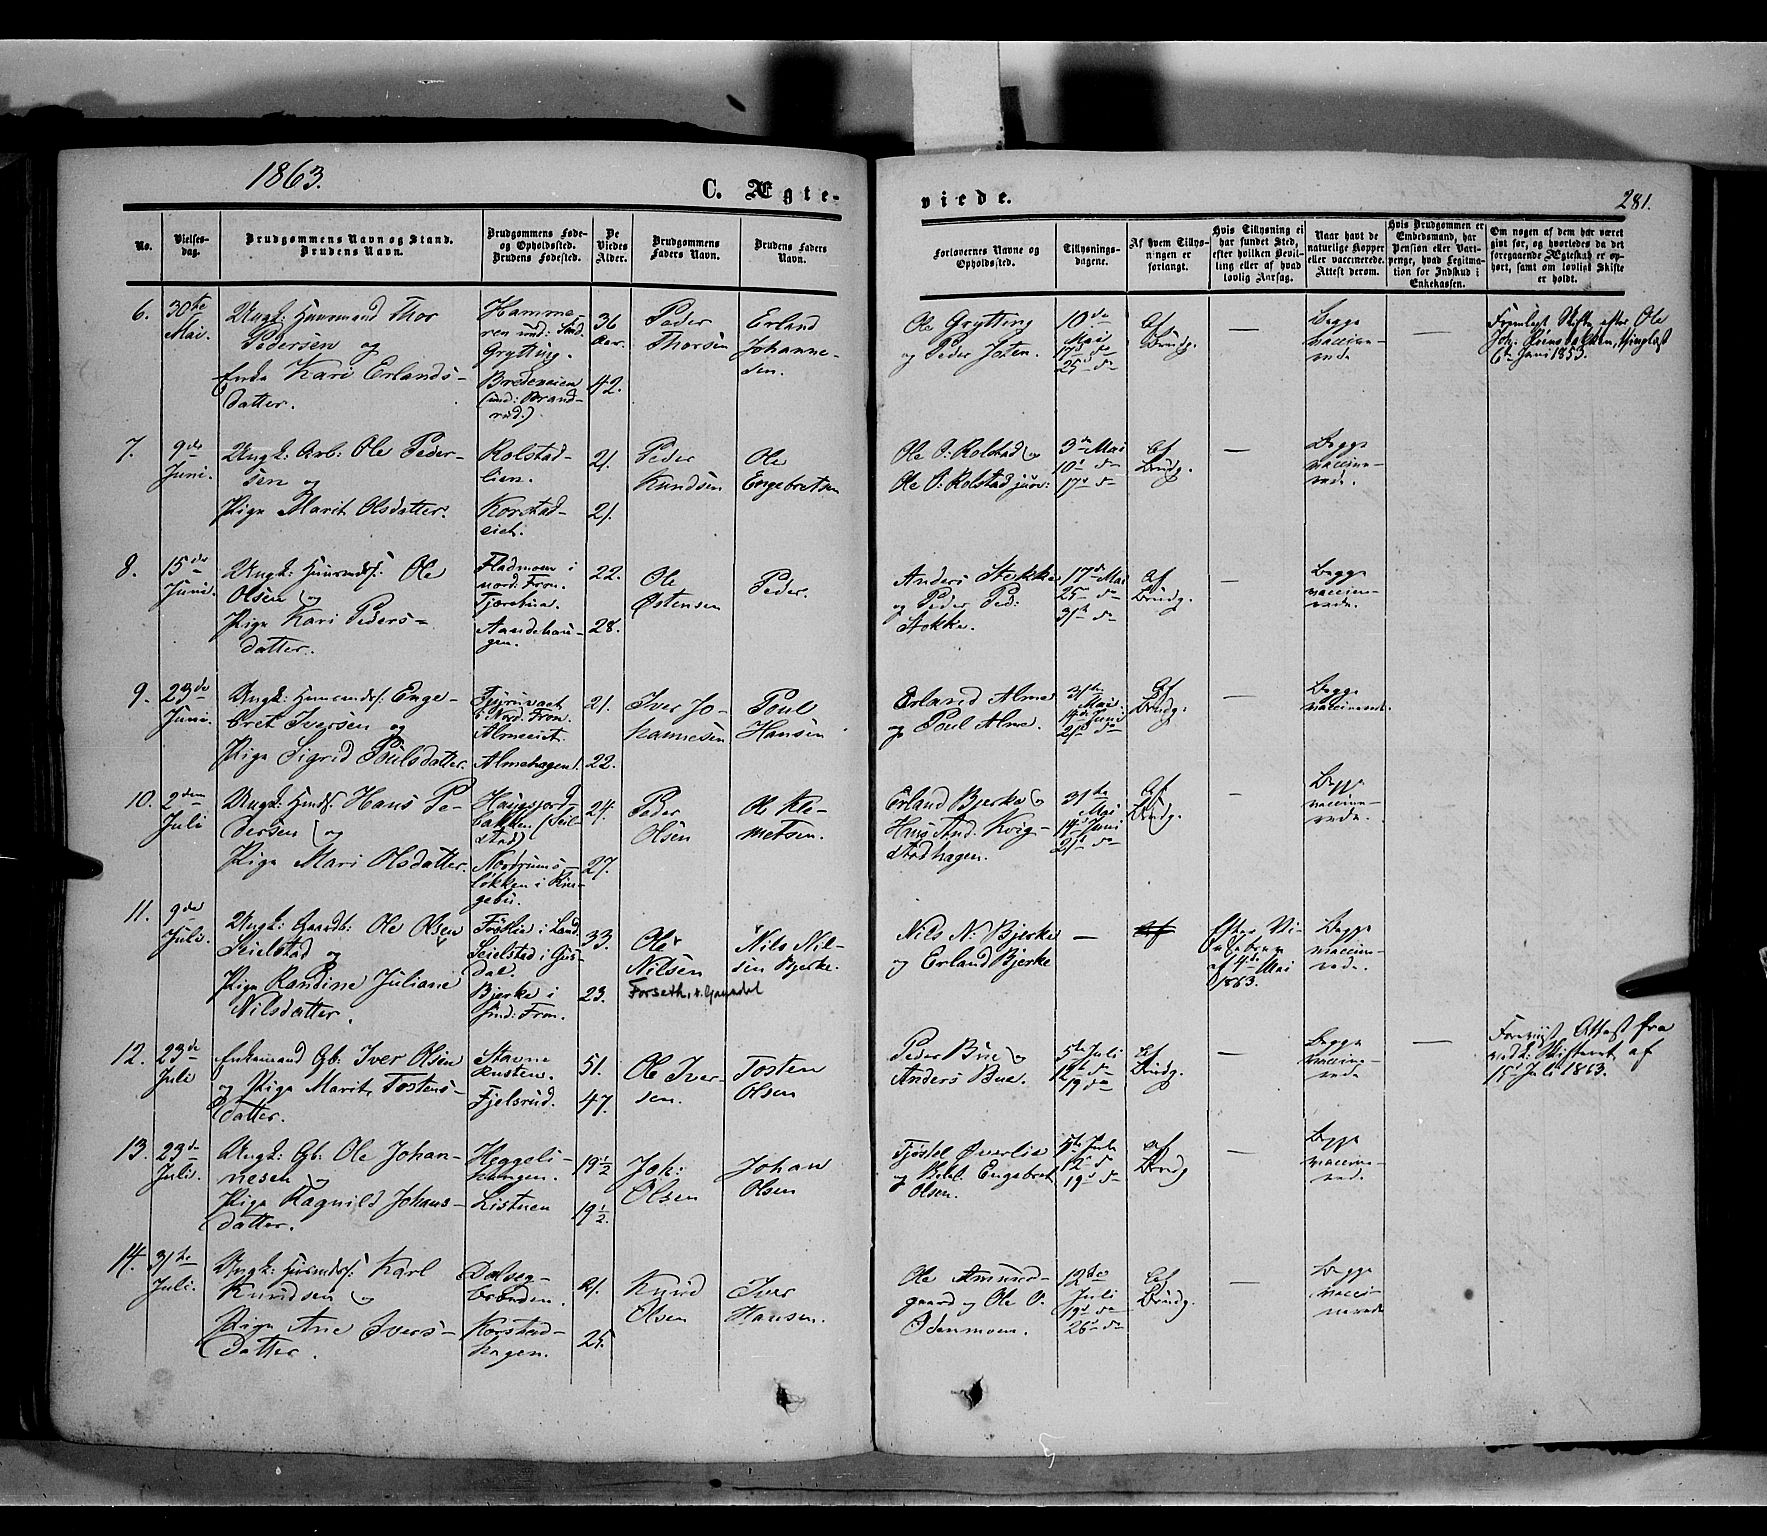 1863.
C. Ægte-
viede.
281.
No.
Vielses-
dag.
Brudgommens Navn og Stand.
Brudens Navn.
Brudgommens Føde-
og Opholdssted.
Brudens Fødested.
De
Viedes
Alder.
Brudgommens
Faders Navn.
Brudens Faders
Navn.
Forlovernes Navne og
Opholdssted.
Tillysnings-
dagene.
Af hvem Tillys-
ningen er
forlangt.
Hvis Tillysning ei
har fundet Sted,
efter hvilken Bevil-
ling eller af hvad
lovlig Aarsag.
Naar havt de
naturlige Kopper
eller vaccinerede.
Attest derom.
Hvis Brudgommen er
Embedsmand, har
Pension eller Vart-
penge, hvad Legitma-
tion for Indskud i
Enkekassen.
Om nogen af dem har været
gift før, og hvorledes da det
foregaaende Ægteskab er op-
hørt, samt om lovligt Skifte
er holdt.
6.
30te
Mai.
Ungk: Huusmand Thor
Pedersen og
Enke Kari Erlands-
datter.
Hamme-
ren und:
Grytting.
Bredeveien
(und: Brand-
rud.)
36
Aar.
42.
Peder
Thorsen
Erland
Johanne-
sen.
Ole Grytting
og Peder Joten.
10de
Mai
17d dn
25d dn
Af
Brudg.
—
Begge
vaccine-
rede
—
Fremlagt Skifte efter Ole
6te Juni 1853.
7.
9de
Juni.
Ungk: Arb: Ole Peder-
sen og
Pige Marit Olsdatter.
Rolstad-
lien.
Korstad-
eiet.
21.
21.
Peder
Knudsen
Ole
Engebretsen
Ole O: Rolstad og
Ole O: Rolstad jun:
3de Mai
10d dn
17d dn
Af
Brudg.
—
Begge
vaccine-
rede.
8.
15de
Juni.
Ungk: Huusmdsf. Ole
Olsen og
Pige Kari Peders-
datter.
Fladmoen i
nord. Fron.
Aandehau-
gen.
22.
28.
Ole
Østensen
Peder.
Anders Stokke
og Peder Ped:
Stokke.
17de Mai
25 dn
31te dn
Af
Brudg.
—
Begge
vaccine-
rede.
9.
23de
Juni.
Ungk: Huusmdsf. Enge-
bret Iversen og
Pige Sigrid Poulsdatter.
i Nord. Fron.
Almeeiet.
Almehagen.
21.
22.
Iver Jo-
hannesen
Poul
Hansen
Erland Alme
og Poul Alme.
31te
Mai.
14d Juni
21d dn
Af
Brudg.
—
Begge
vaccinerede.
10.
2den
Juli
Ungk: Hmdsf. Hans Pe-
dersen og
Pige Mari Olsdatter.
Haugsjord-
bakken (Seil-
stad)
Nordrums-
løkken i Rin-
gebu.
24.
27.
Peder
Olsen
Ole Kle-
metsen.
Erland Bjerke og
Hans And: Kvig-
stadhagen.
31te
Mai
14d Juni
21d dn
Af
Brudg.
—
Begge
vaccine-
rede.
11.
9de
Juli.
Ungk: Gaardb: Ole Olsen
Seielstad og
Pige Randine Juliane
Nilsdatter.
Frøslie i Land
Seielstad i Gus-
dal.
Bjerke i
Sind: Fron.
33.
23.
Ole
Nilsen
Forseth, v. Gausdal
Nils Nil-
sen Bjerke.
Nils N: Bjerke
og Erland Bjerke
—
Af
Efter Vi-
af 4de Mai
1863.
Begge
vaccine-
rede.
12.
23de
Juli
Enkemand Gb: Iver Olsen
og Pige Marit Tostens-
datter.
Stavne
Fjelsrud.
51.
47.
Ole Iver-
sen.
Tosten
Olsen
Peder Bue og
Anders Bue.
5te Juli
12te dn
19 dn
Af
Brudg.
—
Begge
vaccine-
rede
—
Forevist Attest fra
ved: Skifteret af
15d Juli 1863.
13.
23de
Juli.
Ungk: Gb. Ole Johan-
nesen og
Pige Ragnild Johans-
datter.
Heggeli-
haugen.
Listuen
19 1/2
19 1/2.
Joh:
Olsen
Johan
Olsen
Tjøstel Øverlie
og Engebret
Olsen.
5te Juli
12d dn
19d dn
Af
Brudg
—
Begge
vaccine-
rede.
14.
31te
Juli.
Ungk: Huusmdsf: Karl
Knudsen og
Pige Ane Ivers-
datter.
Dalseg-
brenden.
Korstad-
hagen.
21.
25.
Knud
Olsen
Iver
Hansen.
Ole Amund-
gaard og Ole O.
Odenmoen.
12te
Juli
19d dn
26d dn
Af
Brudg.
—
Begge
vacci-
nerede